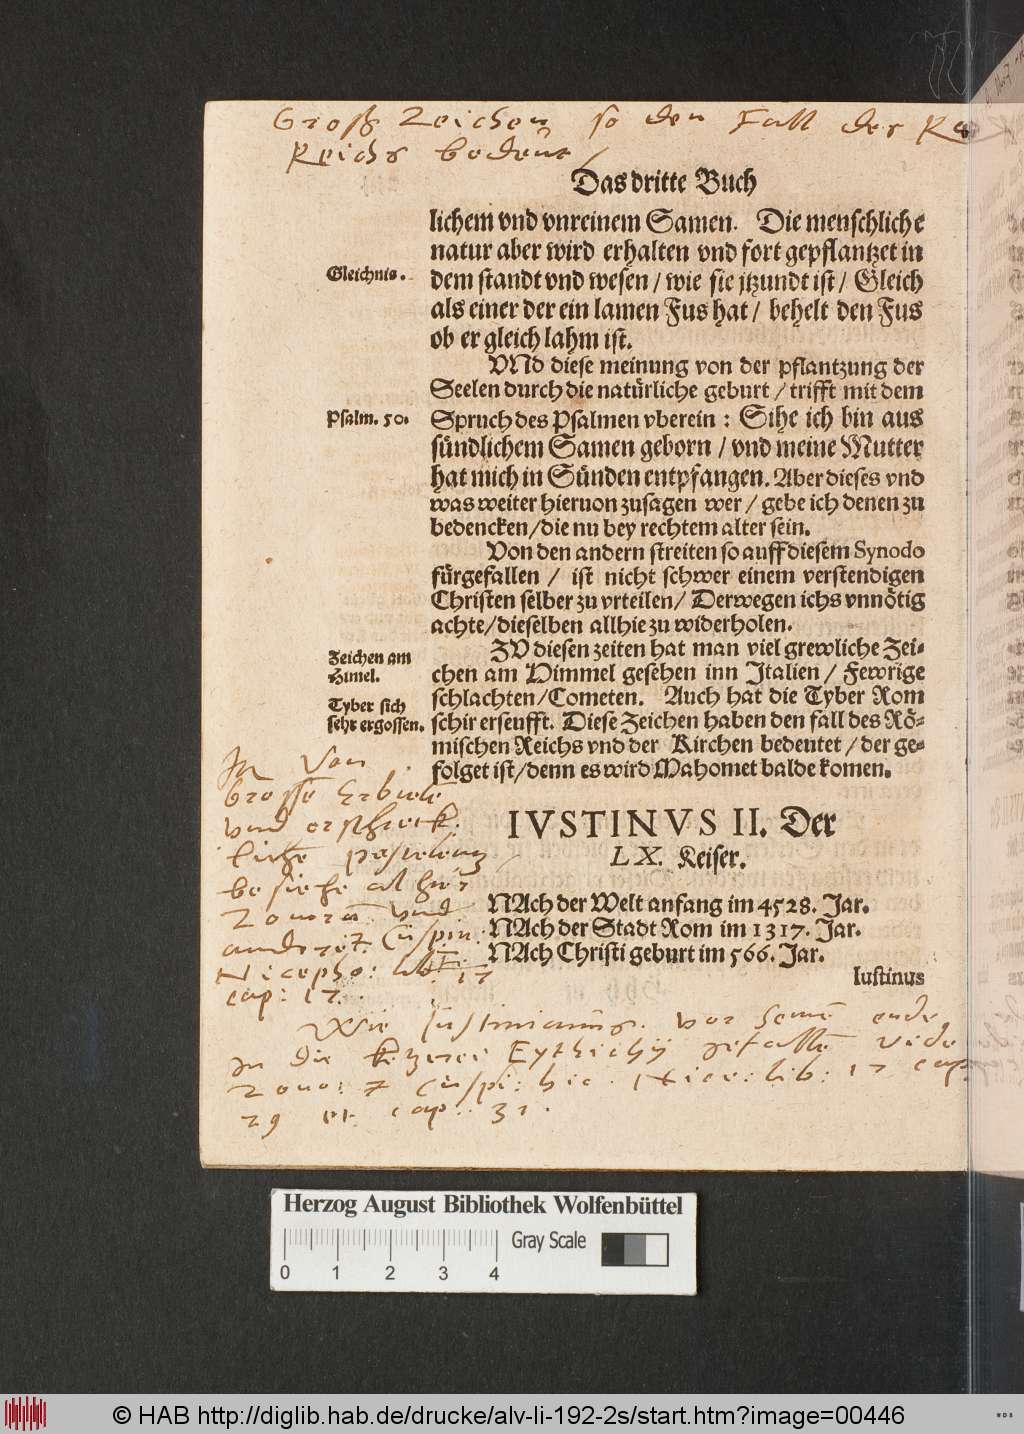 Groß Zeichen so den Fall der
Reichs
Das dritte Buch
lichem vnd vnreinem Samen. Die menschliche
natur aber wird erhalten vnd fort gepflantzet in
Gleichnis.
dem standt vnd wesen / wie sie jtzundt ist / Gleich
als einer der ein lamen Fus hat / behelt den Fus
ob er gleich lahm ist.
VNd diese meinung von der pflantzung der
Seelen durch die natürliche geburt / trifft mit dem
Psalm. 50.
Spruch des Psalmen vberein : Sihe ich bin aus
sündlichem Samen geborn / vnd meine Mutter
hat mich in Sünden entpfangen. Aber dieses vnd
was weiter hieruon zusagen wer / gebe ich denen zu
bedencken / die nu bey rechtem alter sein.
Von den andern streiten so auff diesem Synodo
fürgefallen / ist nicht schwer einem verstendigen
Christen selber zu vrteilen / Derwegen ichs vnnötig
achte / dieselben allhie zu widerholen.
ZV diesen zeiten hat man viel grewliche Zei-
Zeichen am
Himel.
chen am Himmel gesehen inn Italien / Fewrige
Tyber sich
sehr ergossen.
schlachten / Cometen. Auch hat die Tyber Rom
schir erseufft. Diese Zeichen haben den fall des Rö-
mischen Reichs vnd der Kirchen bedeutet / der ge-
folget ist / denn es wird Mahomet balde komen.
In von
vnd
IVSTINVS II. Der
LX. Keiser.
besiehe
NAch der Welt anfang im 4528. Jar.
vnd
NAch der Stadt Rom im 1317. Jar.
Cuspin:
NAch Christi geburt im 566. Jar.
Nicepho: lib: 17
cap: 17.
Iustinus
Wie Justinianus vor seinem ende
in die
Cuspi: hic. Nice: lib: 17 cap:
29 et cap: 31.
Herzog August Bibliothek Wolfenbüttel
Gray Scale
0 1 2 3 4
© HAB http://diglib.hab.de/drucke/alv-li-192-2s/start.htm?image=00446